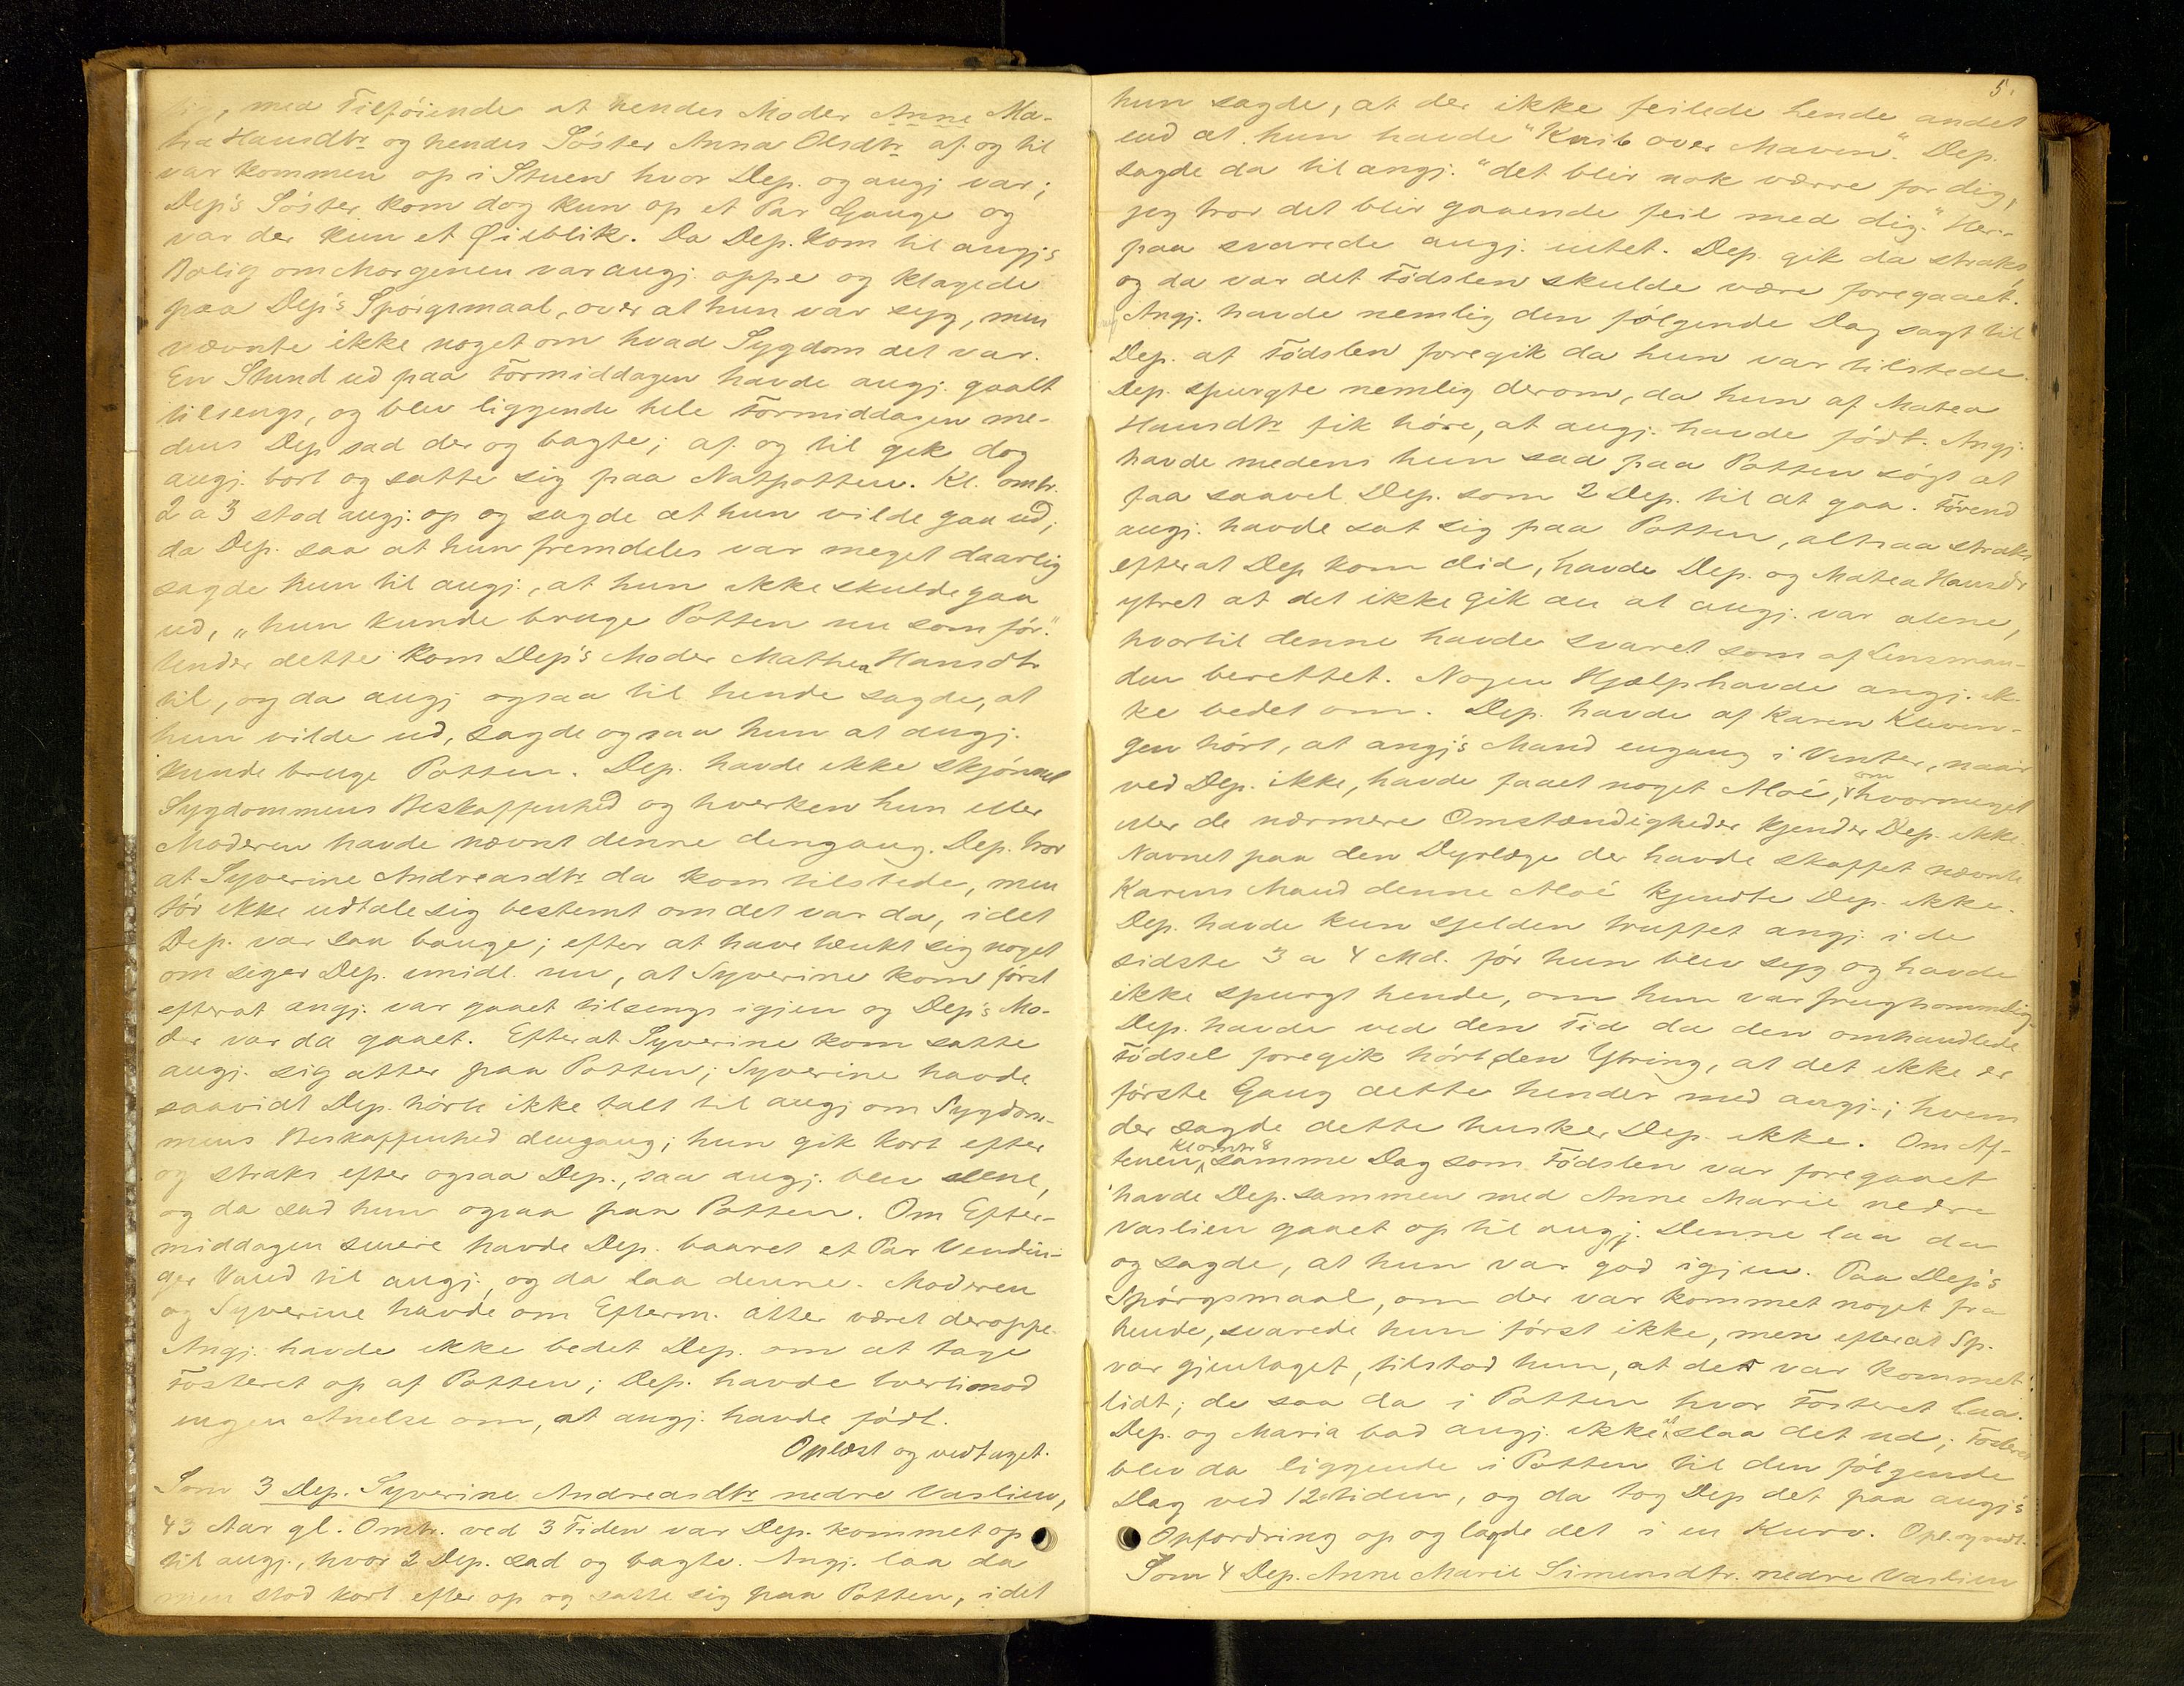 lig, med Tilføiende at hendes Moder Anne Ma-
tia Hansdtr. og hendes Søster Anna Olsdtr. af og til
var kommen op i Stuen hvor Dep. og angj. var;
Dep's Søster kom dog kun op et Par Gange og
var der kun et Øieblik. Da Dep. kom til angj's
Bolig om Morgenen var angj. oppe og klagede
paa Dep's Spørgsmaal, over at hun var syg, men
nævnte ikke noget om hvad Sygdom det var.
En Stund ud paa Formiddagen havde angj. gaaet
tilsengs, og blev liggende hele Formiddagen me-
dens Dep sad der og bagte; af og til gik dog
angj. bort og satte sig paa Natpotten. Kl. omtr.
2 a 3 stod angj. op og sagde at hun vilde gaa ud;
da Dep. saa at hun fremdeles var meget daarlig
sagde hun til angj., at hun ikke skulde gaa
ud, „hun kunde bruge Potten nu som før."
Under dette kom Dep's Moder Mathea Hansdtr
til, og da angj ogsaa til hende sagde, at
hun vilde ud, sagde ogsaa hun at angj.
kunde bruge Potten. Dep. havde ikke skjønnet
Sygdommens Beskaffenhed og hverken hun eller
Moderen havde nævnt denne dengang. Dep. tror
at Syverine Andreasdtr. da kom tilstede, men
tør ikke udtale sig bestemt om det var da, idet
Dep. var saa bange; efter at have tænkt sig noget
om siger Dep. imidl. nu, at Syverine kom først
efterat angj. var gaaet tilsengs igjen og Dep's Mo-
der var da gaaet. Efterat Syverine kom satte
angj. sig atter paa Potten; Syverine havde
saavidt Dep. hørte ikke talt til angj om Sygdom-
mens Beskaffenhed dengang; hun gik kort efter
og straks efter ogsaa Dep., saa angj. blev alene,
og da sad hun ogsaa paa Potten. Om Efter-
middagen senere havde Dep. baaret et Par Vendin-
ger Vand til angj., og da laa denne. Moderen
og Syverine havde om Efterm. atter været deroppe.
Angj. havde ikke bedet Dep. om at tage
Fosteret op af Potten; Dep. havde tvertimod
ingen Anelse om, at angj. havde født.
Oplæst og vedtaget.
Som 3 Dep. Syverine Andreasdtr. nedre Vaslien,
43 Aar gl. Omtr. ved 3 Tiden var Dep. kommet op
til angj., hvor 2 Dep. sad og bagte. Angj. laa da
men stod kort efter op og satte sig paa Potten, idet
5.
hun sagde, at der ikke feilede hende andet
end at hun havde "Knib over Maven." Dep.
sagde da til angj. "det blir nok værre for dig,
jeg tror det blir gaaende feil med dig." Her-
paa svarede angj. intet. Dep. gik da straks,
og da var det Fødslen skulde være foregaaet.
Angj. havde nemlig den følgende Dag sagt til
Dep. at Fødslen foregik da hun var tilstede.
Dep. spurgte nemlig derom, da hun af Matea
Hansdtr fik høre, at angj. havde født. Angj.
havde medens hun sad paa Potten søgt at
faa saavel Dep. som 2 Dep. til at gaa. Førend
angj. havde sat sig paa Potten, altsaa straks
efterat Dep kom did, havde Dep. og Matea Hansdr
ytret at det ikke gik an at angj. var alene,
hvortil denne havde svaret som af Lensman-
den berettet. Nogen Hjælp havde angj. ik-
ke bedet om. Dep. havde af Karen Kleven-
gen hørt, at angj's Mand engang i Vinter, naar
ved Dep. ikke, havde faaet noget Aloé, om hvormeget
eller de nærmere Omstændigheder kjender Dep. ikke.
Navnet paa den Dyrlæge der havde skaffet nævnte
Karens Mand denne Aloé kjendte Dep. ikke.
Dep. havde kun sjelden truffet angj. i de
sidste 3 a 4 Md. før hun blev syg og havde
ikke spurgt hende, om hun var frugtsommelig.
Dep. havde ved den Tid da den omhandlede
Fødsel foregik hørt den Ytring, at det ikke er
første Gang dette hender med angj.; hvem
der sagde dette husker Dep. ikke. Om Af-
tenen, Kl omtr 8 samme Dag som Fødslen var foregaaet
havde Dep. sammen med Anne Marie nedre
Vaslien gaaet op til angj. Denne laa da
og sagde, at hun var god igjen. Paa Dep's
Spørgsmaal, om der var kommet noget fra
hende, svarede hun først ikke, men efterat Sp.
var gjentaget, tilstod hun, at det var kommet
lidt; de saa da i Potten hvor Fosteret laa.
Dep. og Maria bad angj. ikke at slaa det ud; Fosteret
blev da liggende i Potten til den følgende
Dag ved 12 tiden, og da tog Dep det paa angj's
Opfordring op og lagde det i en Kurv. Opl. og vedt.
Som 4 Dep. Anne Marie Simensdtr. nedre Vaslien